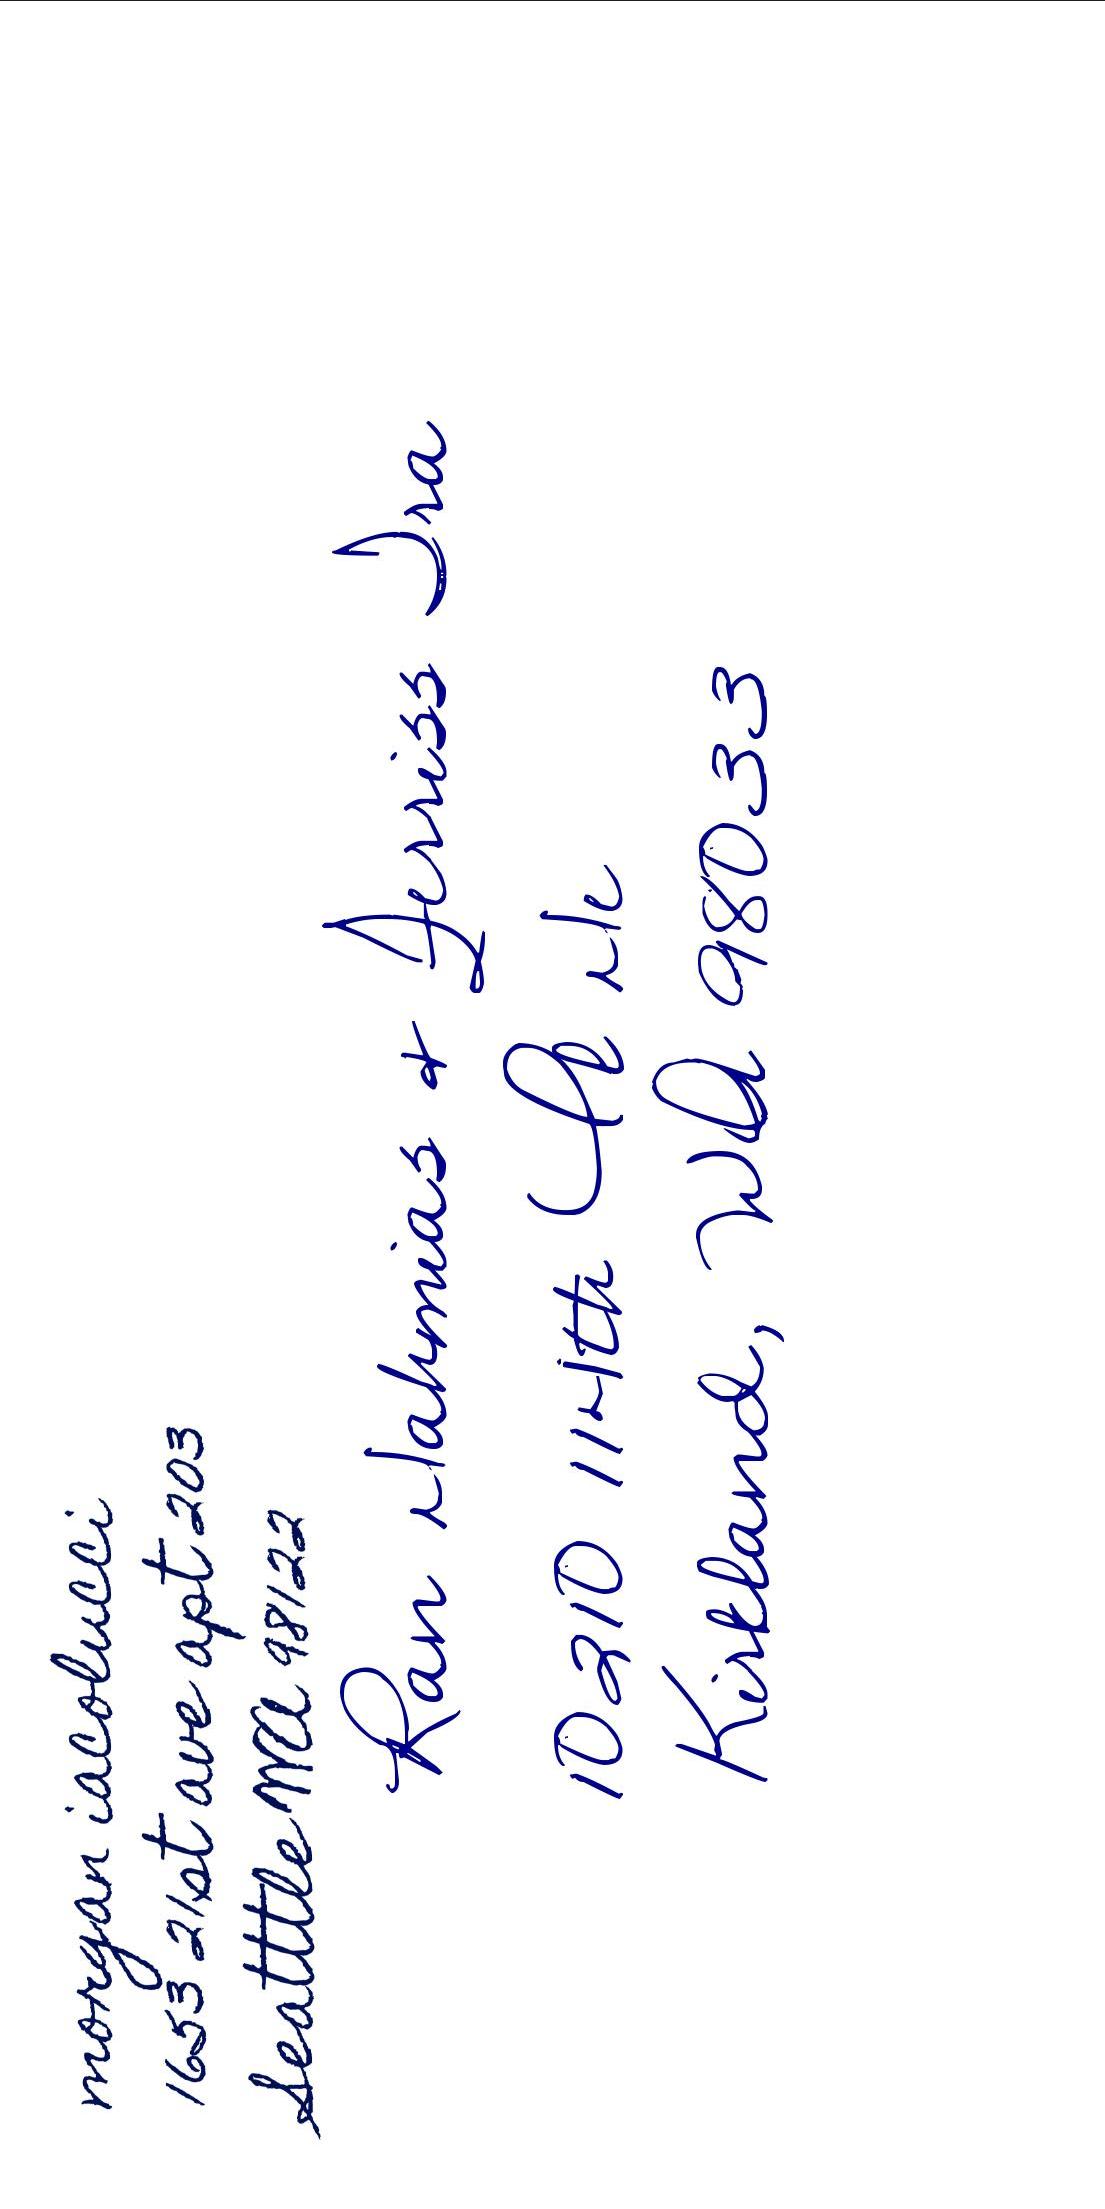 morgan iacolucci
1653 21st ave apt 203
Seatttle WA 98122
Ran Nahmias & Ferriss Ira
10210 114th Ne
Kirkland, WA 98033